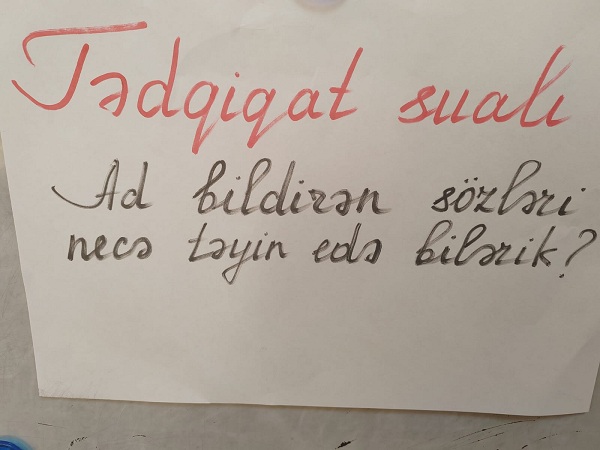 Tədqiqat sualı
Ad bildirən sözləri
necə təyin edə bilərik?